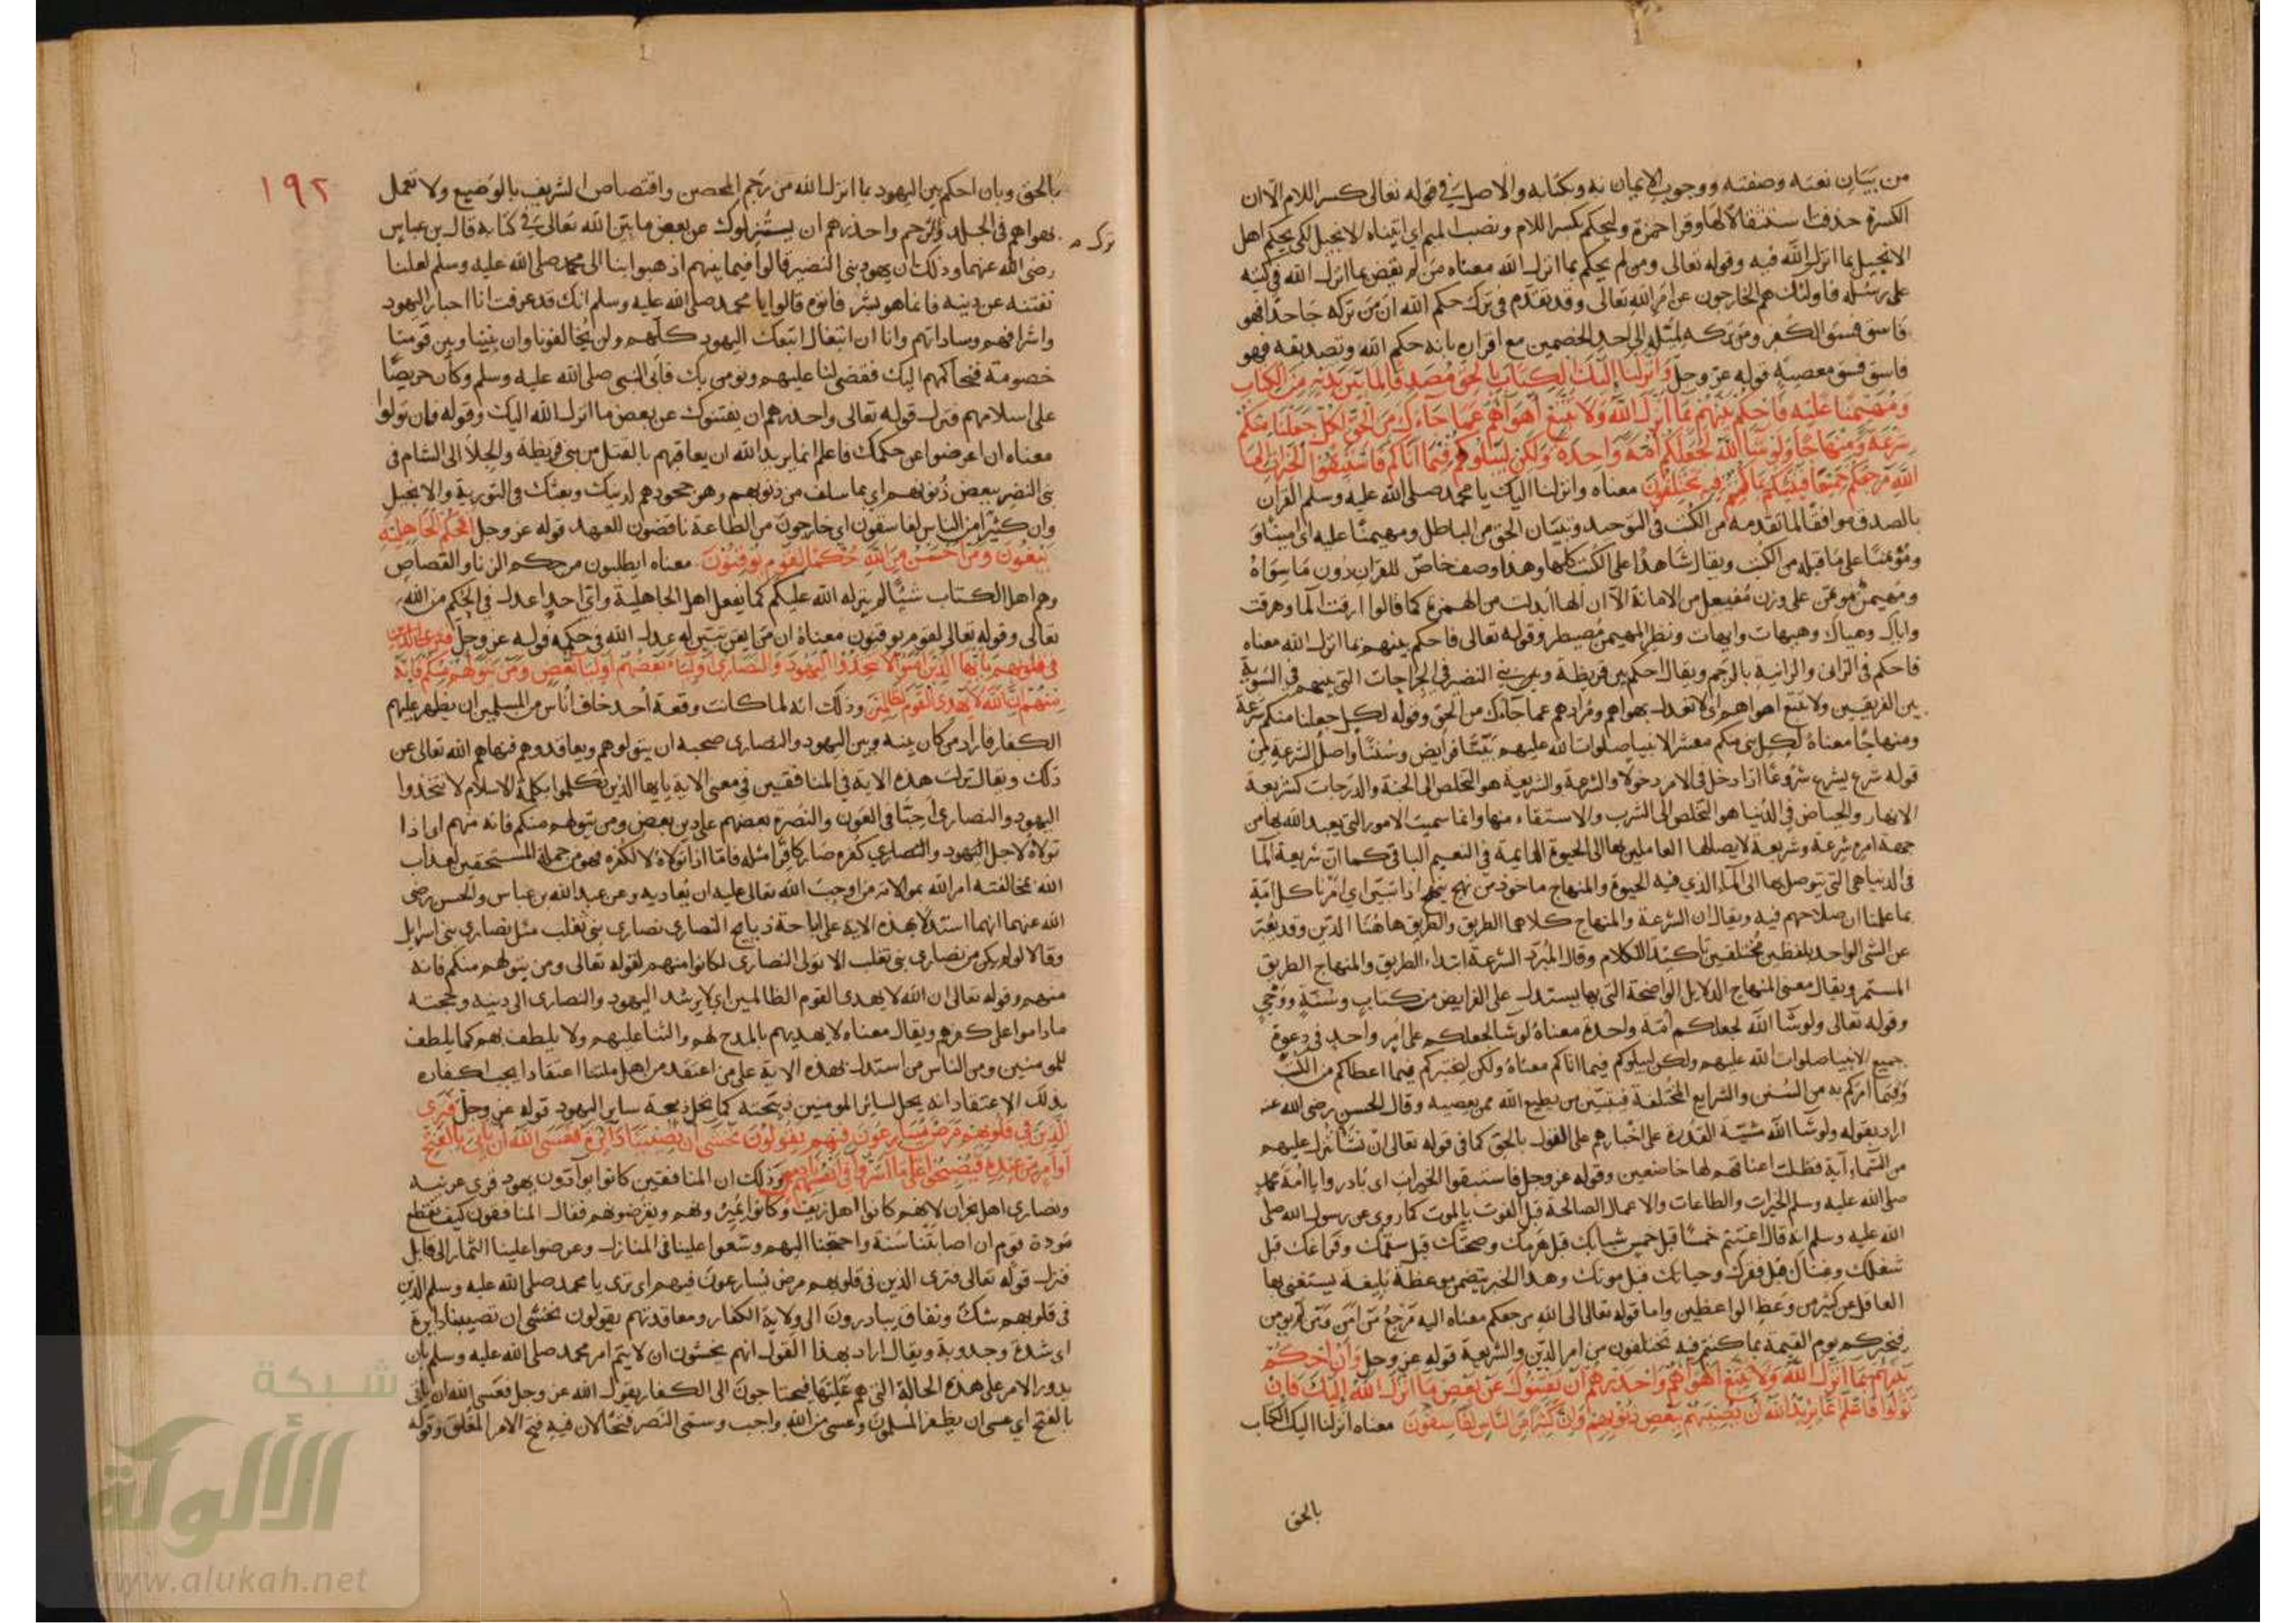 من بيان نعته وصفته ووجوب الايمان به وبكتابه والاصل في قوله تعالى كسر اللام الا ان
الكسرة حذفت استثقالا لها وقرا حمزة وليحكم بكسر اللام ونصب الميم اي اتيناه الانجيل لكي يحكم اهل
الانجيل بما انزل الله فيه وقوله تعالى ومن لم يحكم بما انزل الله معناه من لم يقض بما انزل الله في كتبه
على رسله فاولئك هم الخارجون عن امر الله تعالى وقد تقدم في ترك حكم الله ان من تركه جاحدا فهو
فاسق فسق الكفر ومن تركه لميله الى احد الخصمين مع اقراره بانه حكم الله وتصديقه فهو
فاسق فسق معصية قوله عز وجل وانزلنا اليك الكتاب بالحق مصدقا لما بين يديه من الكتاب
ومهيمنا عليه فاحكم بينهم بما انزل الله ولا تتبع اهواءهم عما جاءك من الحق لكل جعلنا منكم
شرعة ومنهاجا ولو شا الله لجعلكم امة واحدة ولكن ليبلوكم فيما اتاكم فاستبقوا الخيرات الى
الله مرجعكم جميعا فينبئكم بما كنتم فيه تختلفون معناه وانزلنا اليك يا محمد صلى الله عليه وسلم القران
بالصدق موافقا لما تقدمه من الكتب في التوحيد وبيان الحق من الباطل ومهيمنا عليه اي امينا و
ومؤتمنا على ما قبله من الكتب ويقال شاهدا على الكتب كلها وهذا وصف خاص للقران دون ما سواه
ومهيمن مؤتمن على وزن مفيعل من الامانة الا ان الها ابدلت من الهمزة كما قالوا ارقت الما وهرقت
واياك وهياك وهيهات وايهات ونظير المهيمن مصيطر وقوله تعالى فاحكم بينهم بما انزل الله معناه
فاحكم في الزاني والزانية بالرجم ويقال احكم بين قريظة وبين بني النضير في الجراحات التي بينهم في السوية
بين الفريقين ولا تتبع اهواهم اي لا تعدل بهواهم ومرادهم عما جاءك من الحق وقوله لكل جعلنا منكم شرعة
ومنهاجا معناه لكل نبي منكم معشر الانبيا صلوات الله عليهم بينا فرايض وسننا واصل الشرعة من
قوله شرع يشرع شروعا اذا دخل في الامر دخولا والشرعة والشريعة هو التخلص الى الجنة والدرجات كشريعة
الانهار والحياض في الدنيا هو التخلص الى الشرب والاستقاء منها وانما سميت الامور التي يعبد الله بها من
جهة امره شرعة وشريعة لايصالها العاملين بها الى الحيوة الدايمة في النعيم الباقي كما ان شريعة الما
في الدنيا هي التي يتوصل بها الى الماء الذي فيه الحيوة والمنهاج ماخوذ من نهج ينهج اذا تبين اي امرنا كل امة
بما علمنا ان صلاحهم فيه ويقال ان الشرعة والمنهاج كلاهما الطريق والطريق هاهنا الدين وقد يعبر
عن الشي الواحد بلفظين مختلفين تاكيدا للكلام وقال المبرد الشرعة ابتداء الطريق والمنهاج الطريق
المستمر ويقال معنى المنهاج الدلايل الواضحة التي بها يستدل على الفرايض من كتاب وسنة ووحي
وقوله تعالى ولو شا الله لجعلكم امة واحدة معناه لو شا لجعلكم على امر واحد في دعوة
جميع الانبيا صلوات الله عليهم ولكن ليبلوكم فيما اتاكم معناه ولكن ليختبركم فيما اعطاكم من الكتب
وفيما امركم به من السنن والشرايع المختلفة فيتبين من يطيع الله ممن يعصيه وقال الحسن رضى الله عنه
اراد بقوله ولو شا الله مشية القدرة على اخبارهم على القول بالحق كما في قوله تعالى ان نشا ننزل عليهم
من السماء آية فظلت اعناقهم لها خاضعين وقوله عز وجل فاستبقوا الخيرات اي بادروا يا امة محمد
صلى الله عليه وسلم الخيرات والطاعات والاعمال الصالحة قبل الفوت بالموت كما روى عن رسول الله صلى
الله عليه وسلم انه قال اغتنم خمسا قبل خمس شبابك قبل هرمك وصحتك قبل سقمك وفراغك قبل
شغلك وغناك قبل فقرك وحياتك قبل موتك وهذا الخبر يتضمن موعظة بليغة يستغنى بها
العاقل عن كثير من وعظ الواعظين واما قوله تعالى الى الله مرجعكم معناه اليه مرجع من امن ومن لم يومن
فيخبركم يوم القيمة بما كنتم فيه تختلفون من امر الدين والشريعة قوله عز وجل وان احكم
بينهم بما انزل الله ولا تتبع اهواهم واحذرهم ان يفتنوك عن بعض ما انزل الله اليك فان
تولوا فاعلم انما يريد الله ان يصيبهم ببعض ذنوبهم وان كثيرا من الناس لفاسقون معناه انزلنا اليك الكتاب
بالحق
١٩٢
بالحق وبان احكم بين اليهود بما انزل الله من رجم المحصن واقتصاص الشريف بالوضيع ولا تعمل
بهواهم في الجلد والرجم واحذرهم ان يستزلوك عن بعض ما بين الله تعالى في كتابه قال بن عباس
ترك
رضى الله عنهما وذلك ان يهود بنى النضير قالوا فيما بينهم اذهبوا بنا الى محمد صلى الله عليه وسلم لعلنا
نفتنه عن دينه فانما هو بشر فاتوه قالوا يا محمد صلى الله عليه وسلم انك قد عرفت انا احبار اليهود
واشرافهم وساداتهم وانا ان اتبعناك اتبعك اليهود كلهم ولن يخالفونا وان بيننا وبين قومنا
خصومة فنحاكمهم اليك فتقضى لنا عليهم ونومن بك فابى النبى صلى الله عليه وسلم وكان حريصا
على اسلامهم فنزل قوله تعالى واحذرهم ان يفتنوك عن بعض ما انزل الله اليك وقوله فان تولوا
معناه ان اعرضوا عن حكمك فاعلم انما يريد الله ان يعاقبهم بالقتل من بنى قريظة والجلا الى الشام فى
بنى النضير ببعض ذنوبهم اي بما سلف من ذنوبهم وهو جحودهم لدينك وبعثك فى التورية والانجيل
وان كثيرا من الناس لفاسقون اي خارجون من الطاعة ناقضون للعهد قوله عز وجل افحكم الجاهلية
يبغون ومن احسن من الله حكما لقوم يوقنون معناه ايطلبون من حكم الزنا والقصاص
وهم اهل الكتاب شيئا لم ينزله الله عليكم كما يفعل اهل الجاهلية واي احد اعدل في الحكم من الله
تعالى وقوله تعالى لقوم يوقنون معناه ان من ايقن تبين له عدل الله فى حكمه قوله عز وجل فترى الذين
فى قلوبهم يا ايها الذين امنوا لا تتخذوا اليهود والنصارى اولياء بعضهم اوليا بعض ومن يتولهم منكم فانه
منهم ان الله لا يهدى القوم الظالمين وذلك انه لما كانت وقعة أحد خاف أناس من المسلمين ان يظهر عليهم
الكفار فاراد من كان بينه وبين اليهود والنصارى صحبة ان يتولوهم ويعاقدوهم فنهاهم الله تعالى عن
ذلك ويقال نزلت هذه الاية في المنافقين فى معنى الاية يا يها الذين تكلموا بكلمة الاسلام لا تتخذوا
اليهود والنصارى احبا فى العون والنصرة بعضهم على دين بعض ومن يتولهم منكم فانه منهم اى اذا
تولاه لاجل اليهود والنصارى كفره صار كافرا مثله فاما اذا تولاه لا لكفره فهو من جملة المستحقين لعذاب
الله بمخالفته امر الله بموالاته من اوجب الله تعالى عليه ان يعاديه وعن عبد الله بن عباس والحسن رضى
الله عنهما انهما استدلا بهذه الاية على اباحة ذبايح النصارى نصارى بنى تغلب مثل نصارى بنى اسرايل
وقالا لو لم يكن من نصارى بنى تغلب الا تولى النصارى لكانوا منهم لقوله تعالى ومن يتولهم منكم فانه
منهم وقوله تعالى ان الله لا يهدى القوم الظالمين اي لا يرشد اليهود والنصارى الى دينه وحجته
ما داموا على كفرهم ويقال معناه لا يهديهم بالمدح لهم والثنا عليهم ولا يلطف بهم كما يلطف
للمومنين ومن الناس من استدل بهذه الاية على من اعتقد من اهل ملتنا اعتقادا يجب اكفاره
بذلك الاعتقاد انه يحل لسائر المومنين ذبيحته كما يحل ذبيحة ساير اليهود قوله عز وجل فترى
الذين في قلوبهم مرض يسارعون فيهم يقولون نخشى ان تصيبنا دائرة فعسى الله ان ياتى بالفتح
او امر من عنده فيصبحوا على ما اسروا فى انفسهم نادمين وذلك ان المنافقين كانوا يوادون يهود قرى عرينه
ونصارى اهل نجران لانهم كانوا اهل ريف وكانوا يميرونهم ويقرضونهم فقال المنافقون كيف نقطع
مودة قوم ان اصابتنا سنة واحتجنا اليهم وسعوا علينا فى المنازل وعرضوا علينا الثمار الى قابل
فنزل قوله تعالى فترى الذين فى قلوبهم مرض يسارعون فيهم اى ترى يا محمد صلى الله عليه وسلم الذين
فى قلوبهم شك ونفاق يبادرون الى ولاية الكفار ومعاقدتهم يقولون نخشى ان تصيبنا دايرة
اى شدة وجدوبة ويقال اراد بهذا القول انهم يخشون ان لا يتم امر محمد صلى الله عليه وسلم بان
يدور الامر على هذه الحالة التى هم عليها فيحتاجون الى الكفار يقول الله عز وجل فعسى الله ان ياتى
بالفتح اي عسى ان يظفر المسلمون وعسى من الله واجب وسمى النصر فتحا لان فيه فتح الامر المغلق وقوله
شبكة
الألوكة
www.alukah.net